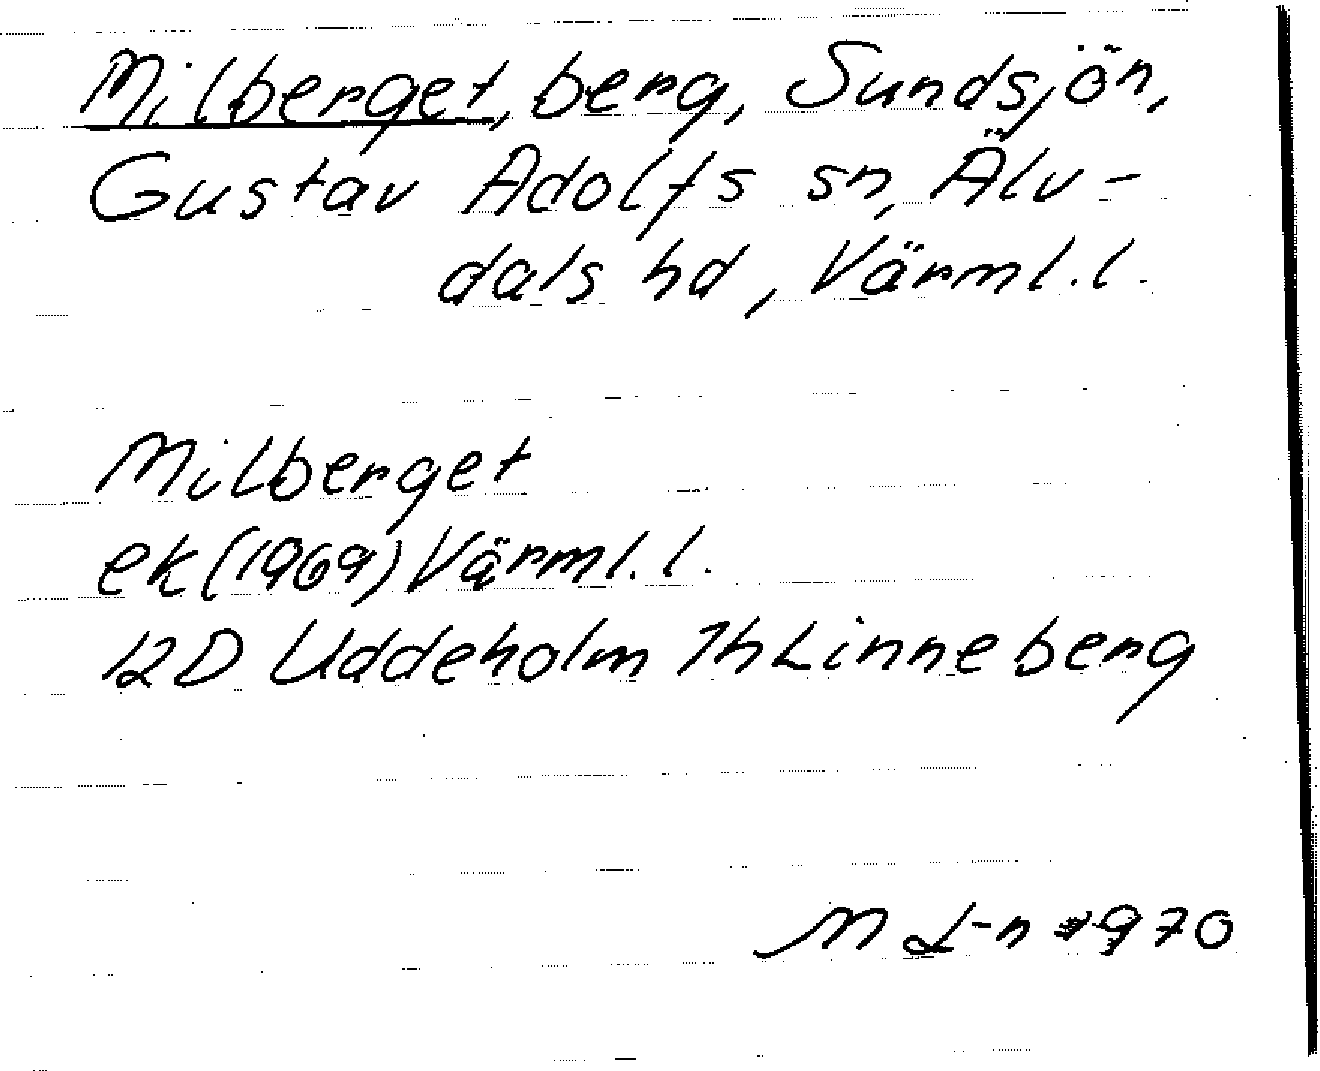 Milberget, berg, Sundsjön,
Gustav Adolfs sn, Älv-
dals hd, Värml.l.
Milberget
ek (1969) Värml.l.
12D Uddeholm Th Linneberg
M L-n 1970